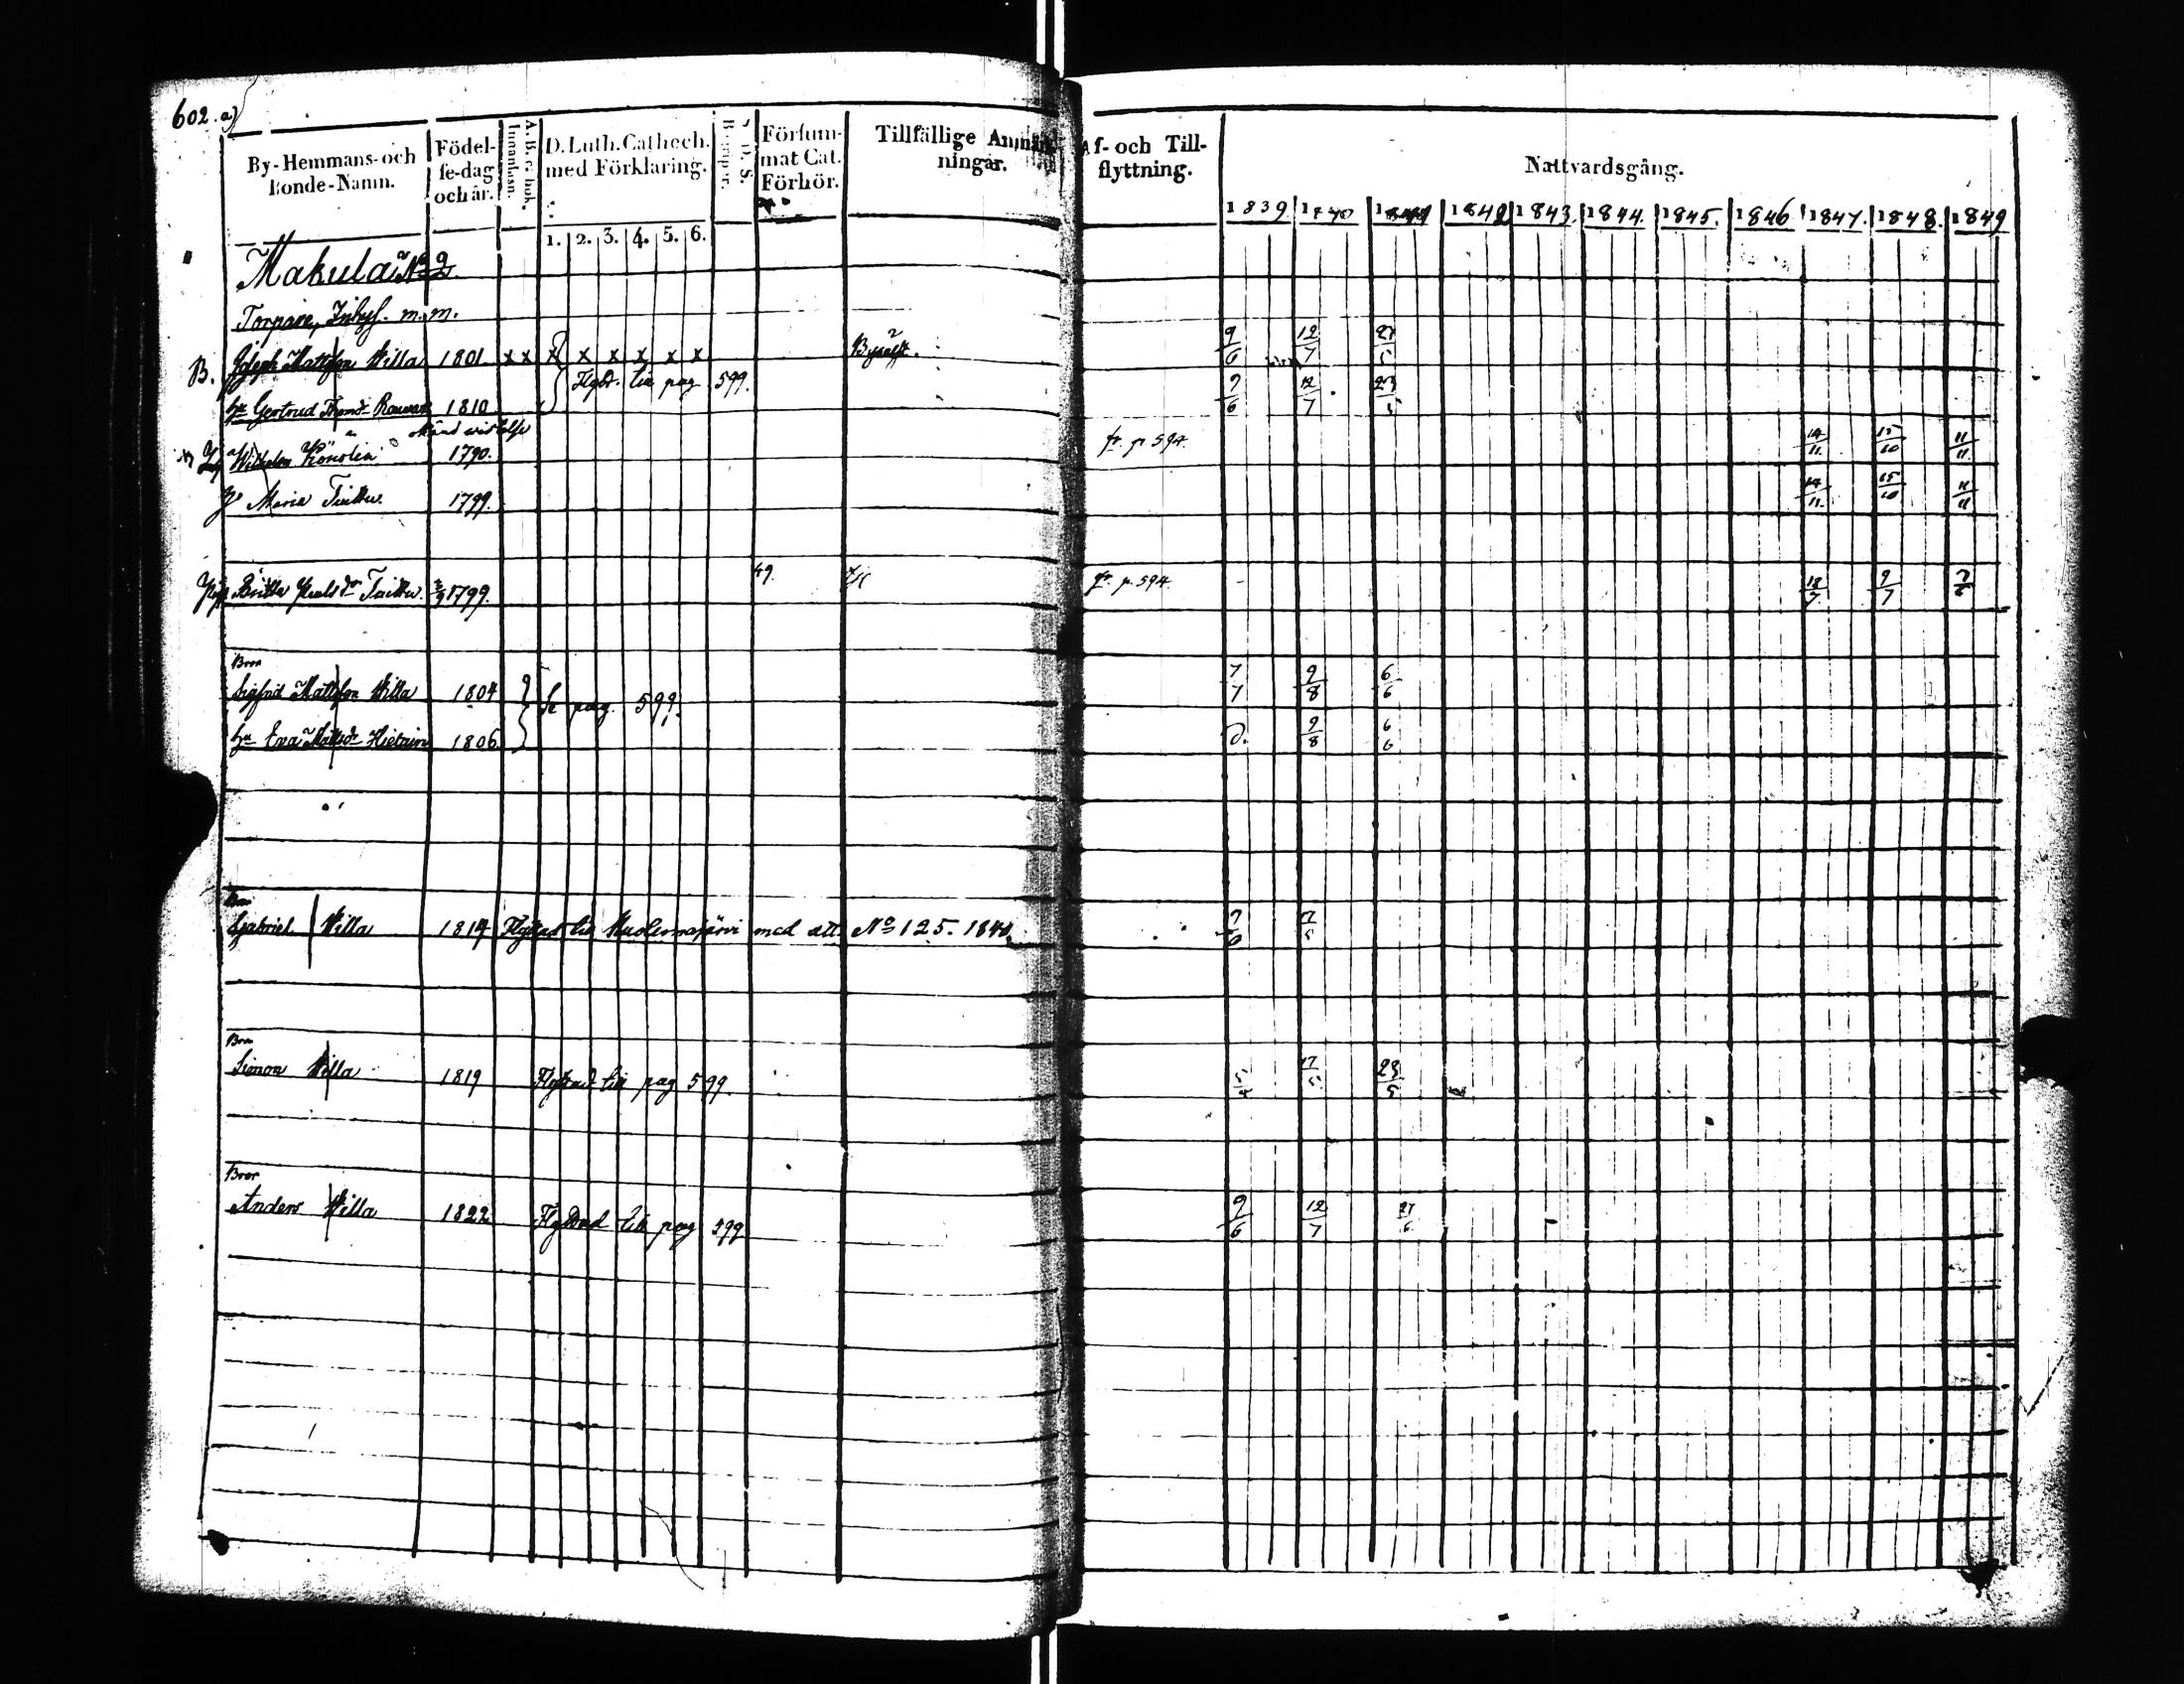 602. a)
By-Hemmans-och Bonde-Namn. Födel-se-dag och år. A.B.c. bok. Innanläsn. D. Luth. Cathech. med Förklaring. Försum-mat Cat. Förhör. Tillfällige Anmärk-ningar. Af- och Till-flyttning. Nattvardsgång.
1839 1840 1841 1842 1843. 1844. 1845. 1846 1847. 1848. 1849
1. 2. 3. 4. 5. 6.
Makula No 2
Torpare, Inhys. m.m.
B. Joseph Mattsson Willa 1801 x x x x x x x x 9/6 12/7 23/5
Flytt. till pag 599.
hu Gertrud 1810 9/6 12/7 23/5
Wilhelm 1790. fr. p. 594. 14/11 15/10 11/11
Maria Tuttu 1799. 14/11 15/10 11/11
Britta Tuttu. 1799. 49. fr. p. 594 18/7 9/7 7/6
Bror
Sigfrid Mattsson Willa 1804 Se pag. 599. 7/7 9/8 6/6
hu Eva Mattsdr Hietain 1806 D. 9/8 6/6
Bror
Gabriel Willa 1814 Flyttad till Muolamajärvi med att No 125. 1841. 9/6 17/5
Bror
Simon Willa 1819 Flyttad till pag 599. 17/5 23/5
Bror
Anders Willa 1822 Flyttad till pag 599 9/6 12/7 27/6